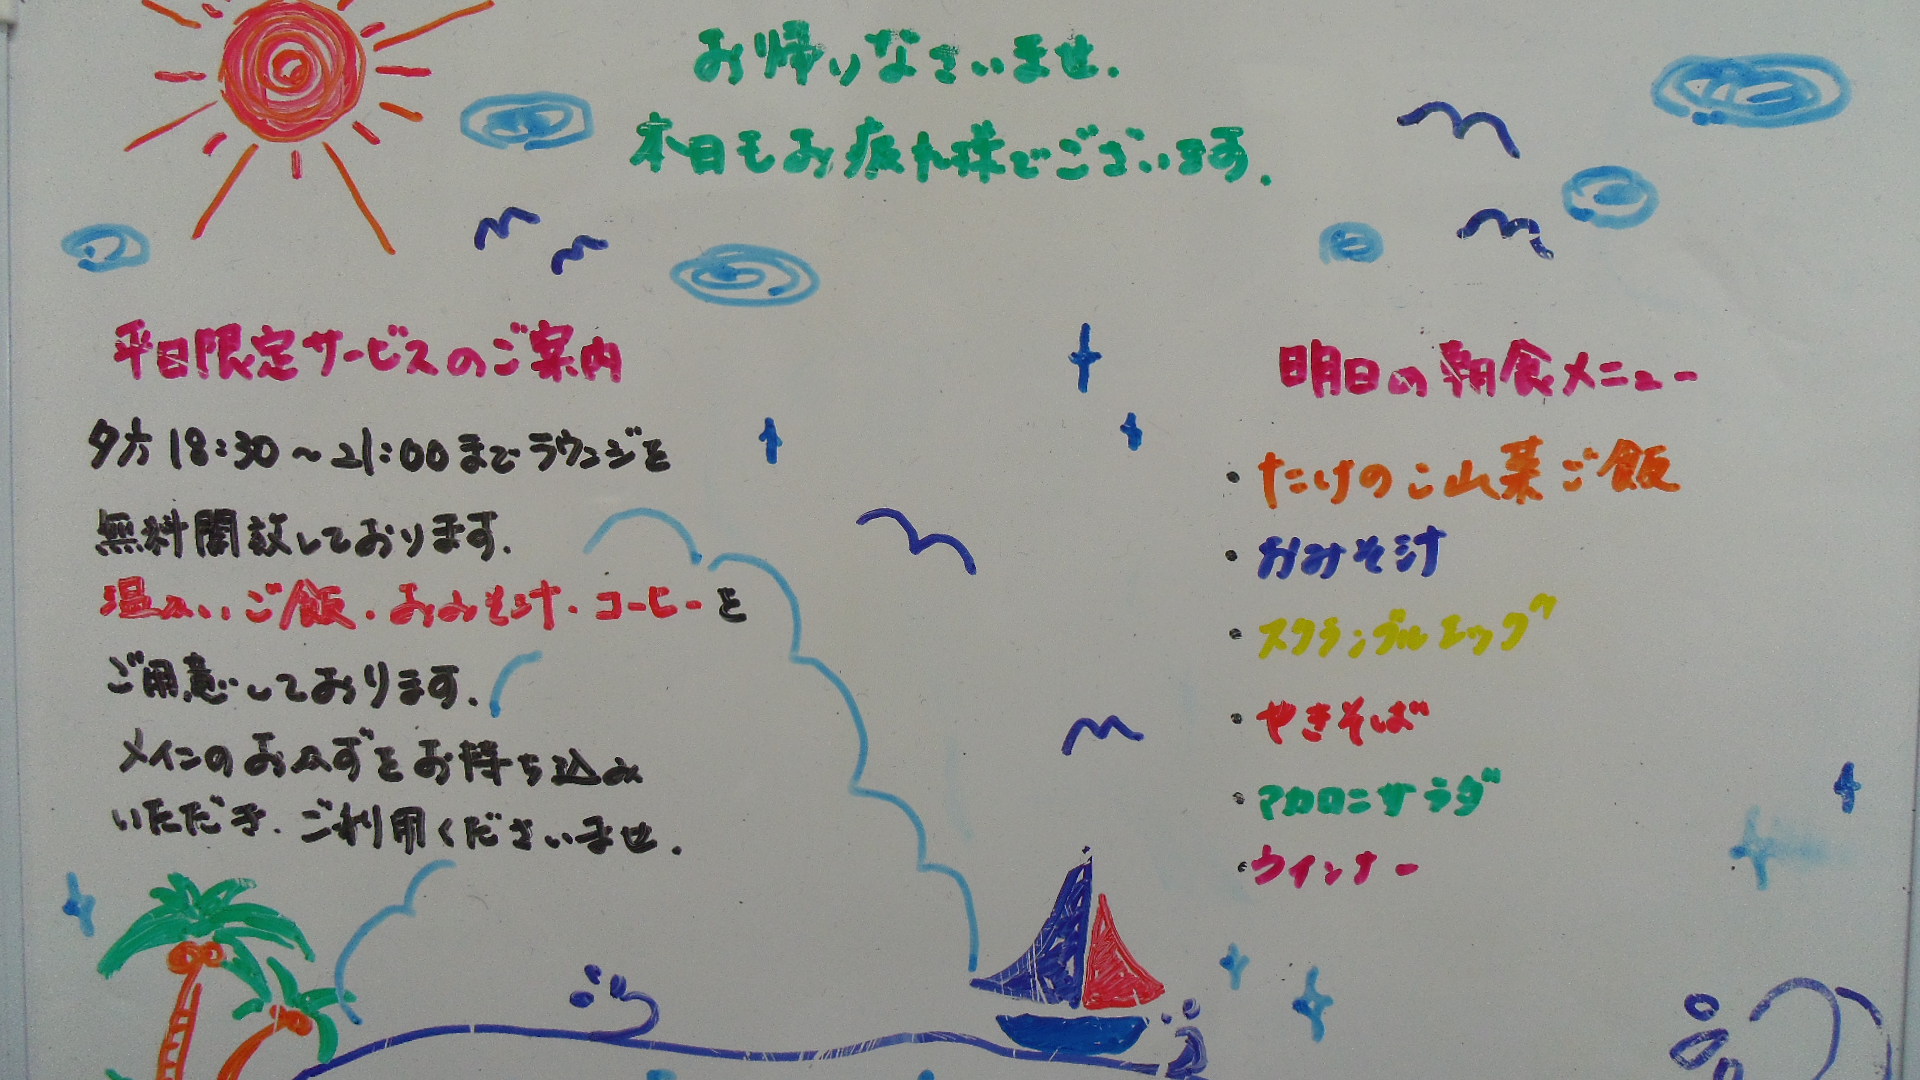 お帰りなさいませ.
本日もお疲れ様でございます.
平日限定サービスのご案内
夕方18:30～21:00までラウンジを
無料開放しております.
温かいご飯・おみそ汁・コーヒーを
ご用意しております.
メインのおかずをお持ち込み
いただき、ご利用くださいませ.
明日の朝食メニュー
・たけのこ山菜ご飯
・おみそ汁
・スクランブルエッグ
・やきそば
・マカロニサラダ
・ウインナー